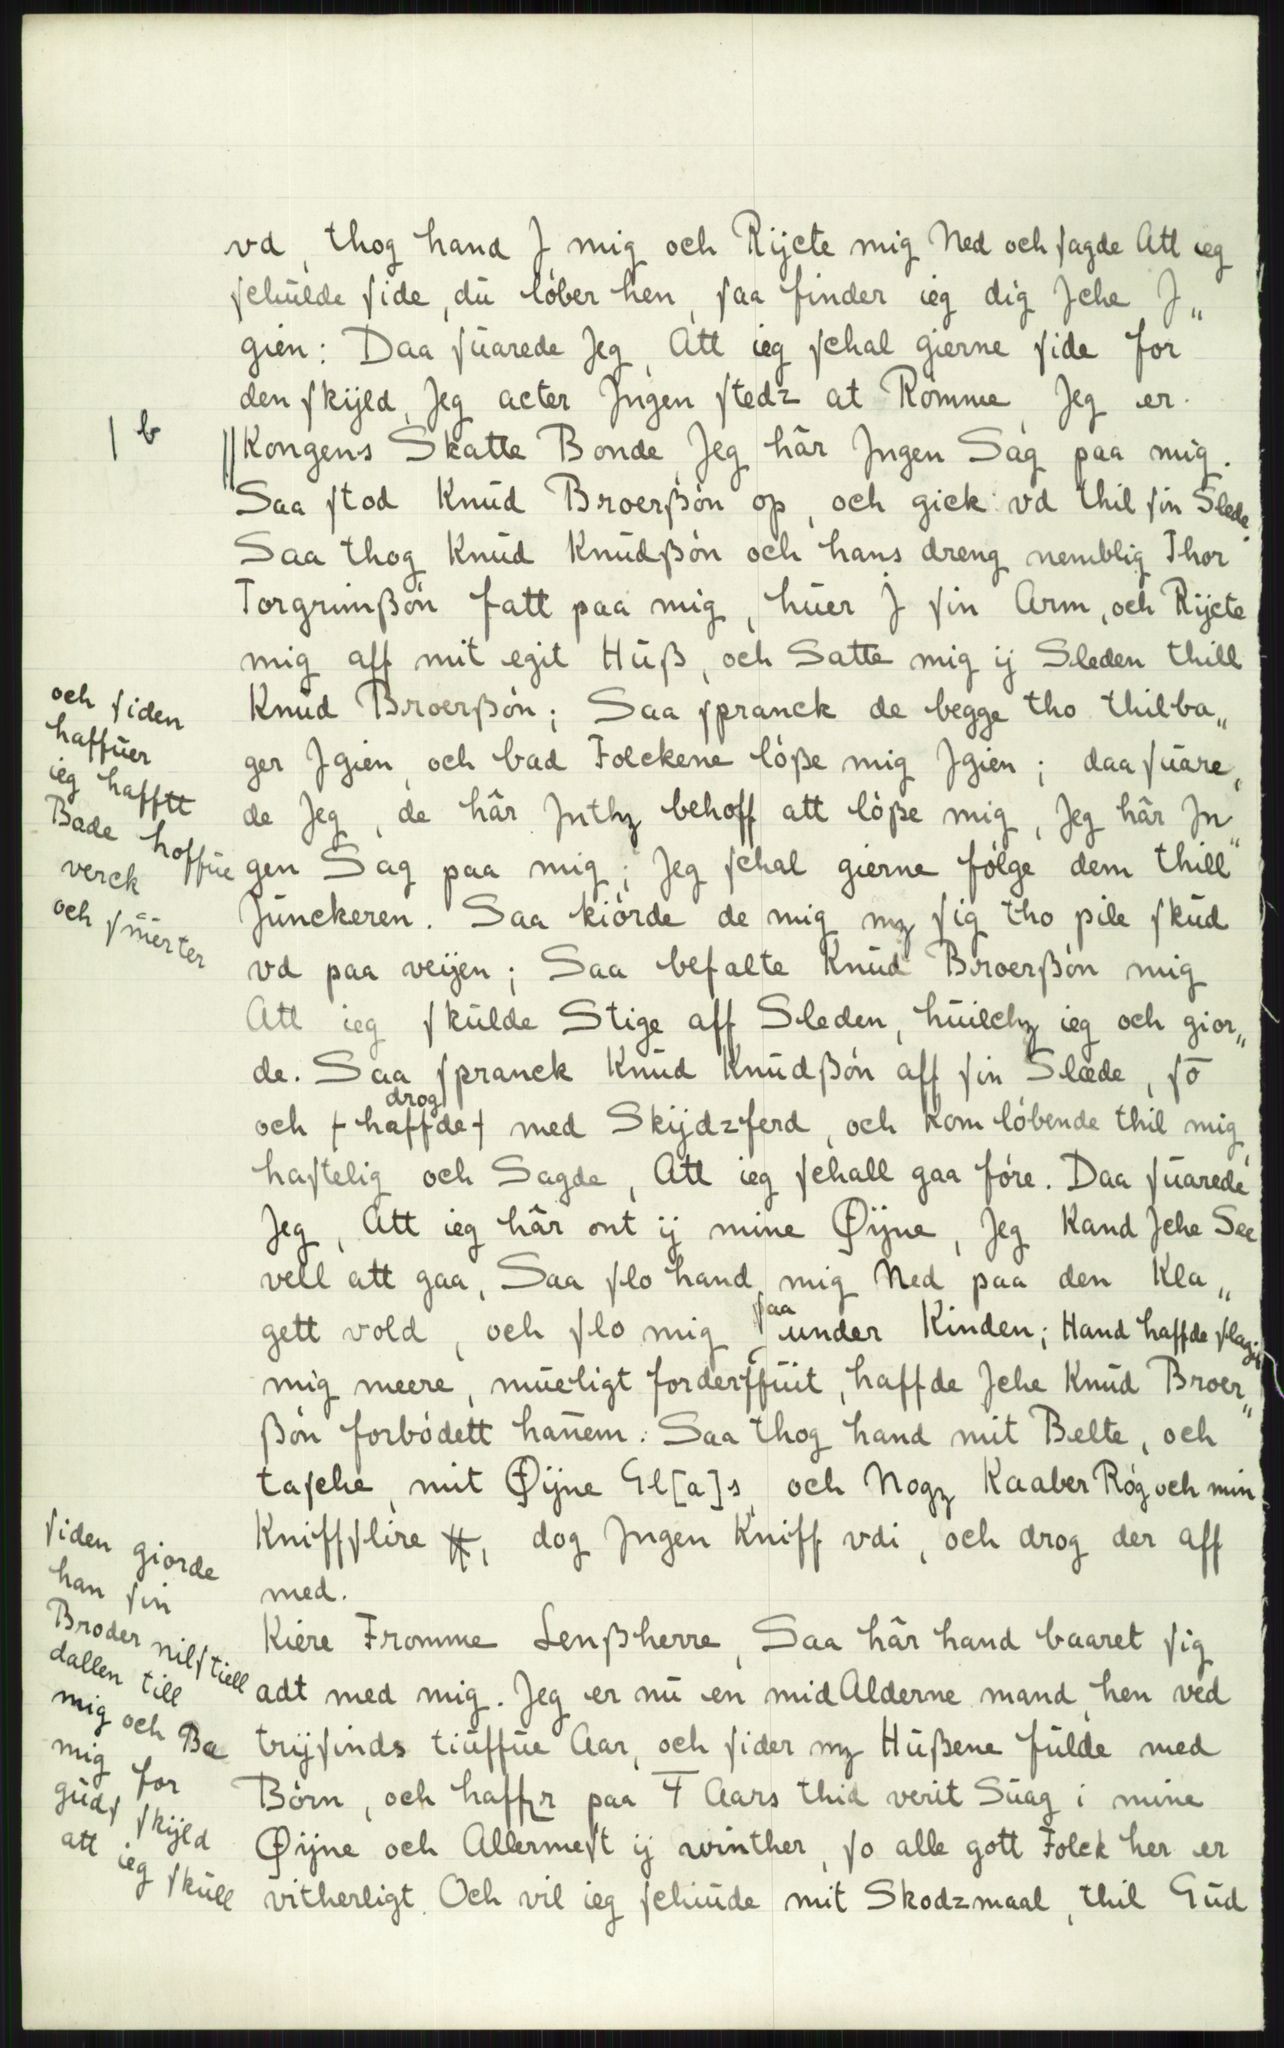 vd, thog hand J mig och Rijcte mig Ned och sagde Att ieg
schulde side, du löber hen, saa finder ieg dig Jche J„
gien: Daa suarede Jeg, Att ieg schal gierne side for
den skijld, Jeg acter Jngen stedz at Römme, Jeg er
1 b
||Kongens Skatte Bonde, Jeg hâr Jngen Sag paa mig.
Saa stod Knud Broerßön op, och gick vd thil sin Slede.
Saa thog Knud Knudßön och hans dreng nemblig Thor
Torgrimßön fatt paa mig, huer J sin Arm, och Rijcte
mig aff mit egit Huß, och Satte mig ij Sleden thill
Knud Broerßön; Saa spranck de begge tho thilba„
ger Jgien, och bad Folckene löße mig Jgien; daa suare„
de Jeg, de hâr Jnthz behoff att löße mig, Jeg hâr Jn„
gen Sag paa mig; Jeg schal gierne fölge dem thill
Junckeren. Saa kiörde de mig mz sig tho pile skud
vd paa veijen; Saa befalte Knud Broerßön mig
och siden
haffuer
ieg hafftt
Bade hoffue
verck
och smerter
Att ieg skulde Stige aff Sleden, huilchz ieg och gior„
de. Saa spranck Knud Knudßön aff sin Slæde, so
drog
och + haffde + med Skijdzferd, och kom löbende thil mig
hastelig och Sagde, Att ieg schall gaa före. Daa suarede
Jeg, Att ieg hâr ont ij mine Øijne, Jeg Kand Jche See
vell att gaa, Saa slo hand mig Ned paa den Kla„
saa
gett vold, och slo mig under Kinden; Hand haffde slagit
mig meere, mueligt forderffuit, haffde Jche Knud Broer„
ßön forbödett hanem. Saa thog hand mit Belte, och
tasche, mit Øijne Gl[a]s, och Nogz Kaaber Rög och min
Kniffslire, dog Jngen Kniff vdi, och drog der aff
med.
Kiere Fromme Lenßherre, Saa hâr hand baaret sig
adt med mig. Jeg er nu en mid Alderne mand, hen ved
trijsinds tiuffue Aar, och sider mz Hußene fulde med
Börn, och haffr paa 4 Aars thid verit Suag i mine
Øijne och Allermest ij winther, so alle gott Folck her er
vitherligt. Och vil ieg schiude mit Skodzmaal, thil Gud
siden giorde
han sin
Broder nils tiell
dallen till
mig och Ba
mig for
guds skijld
att ieg skull